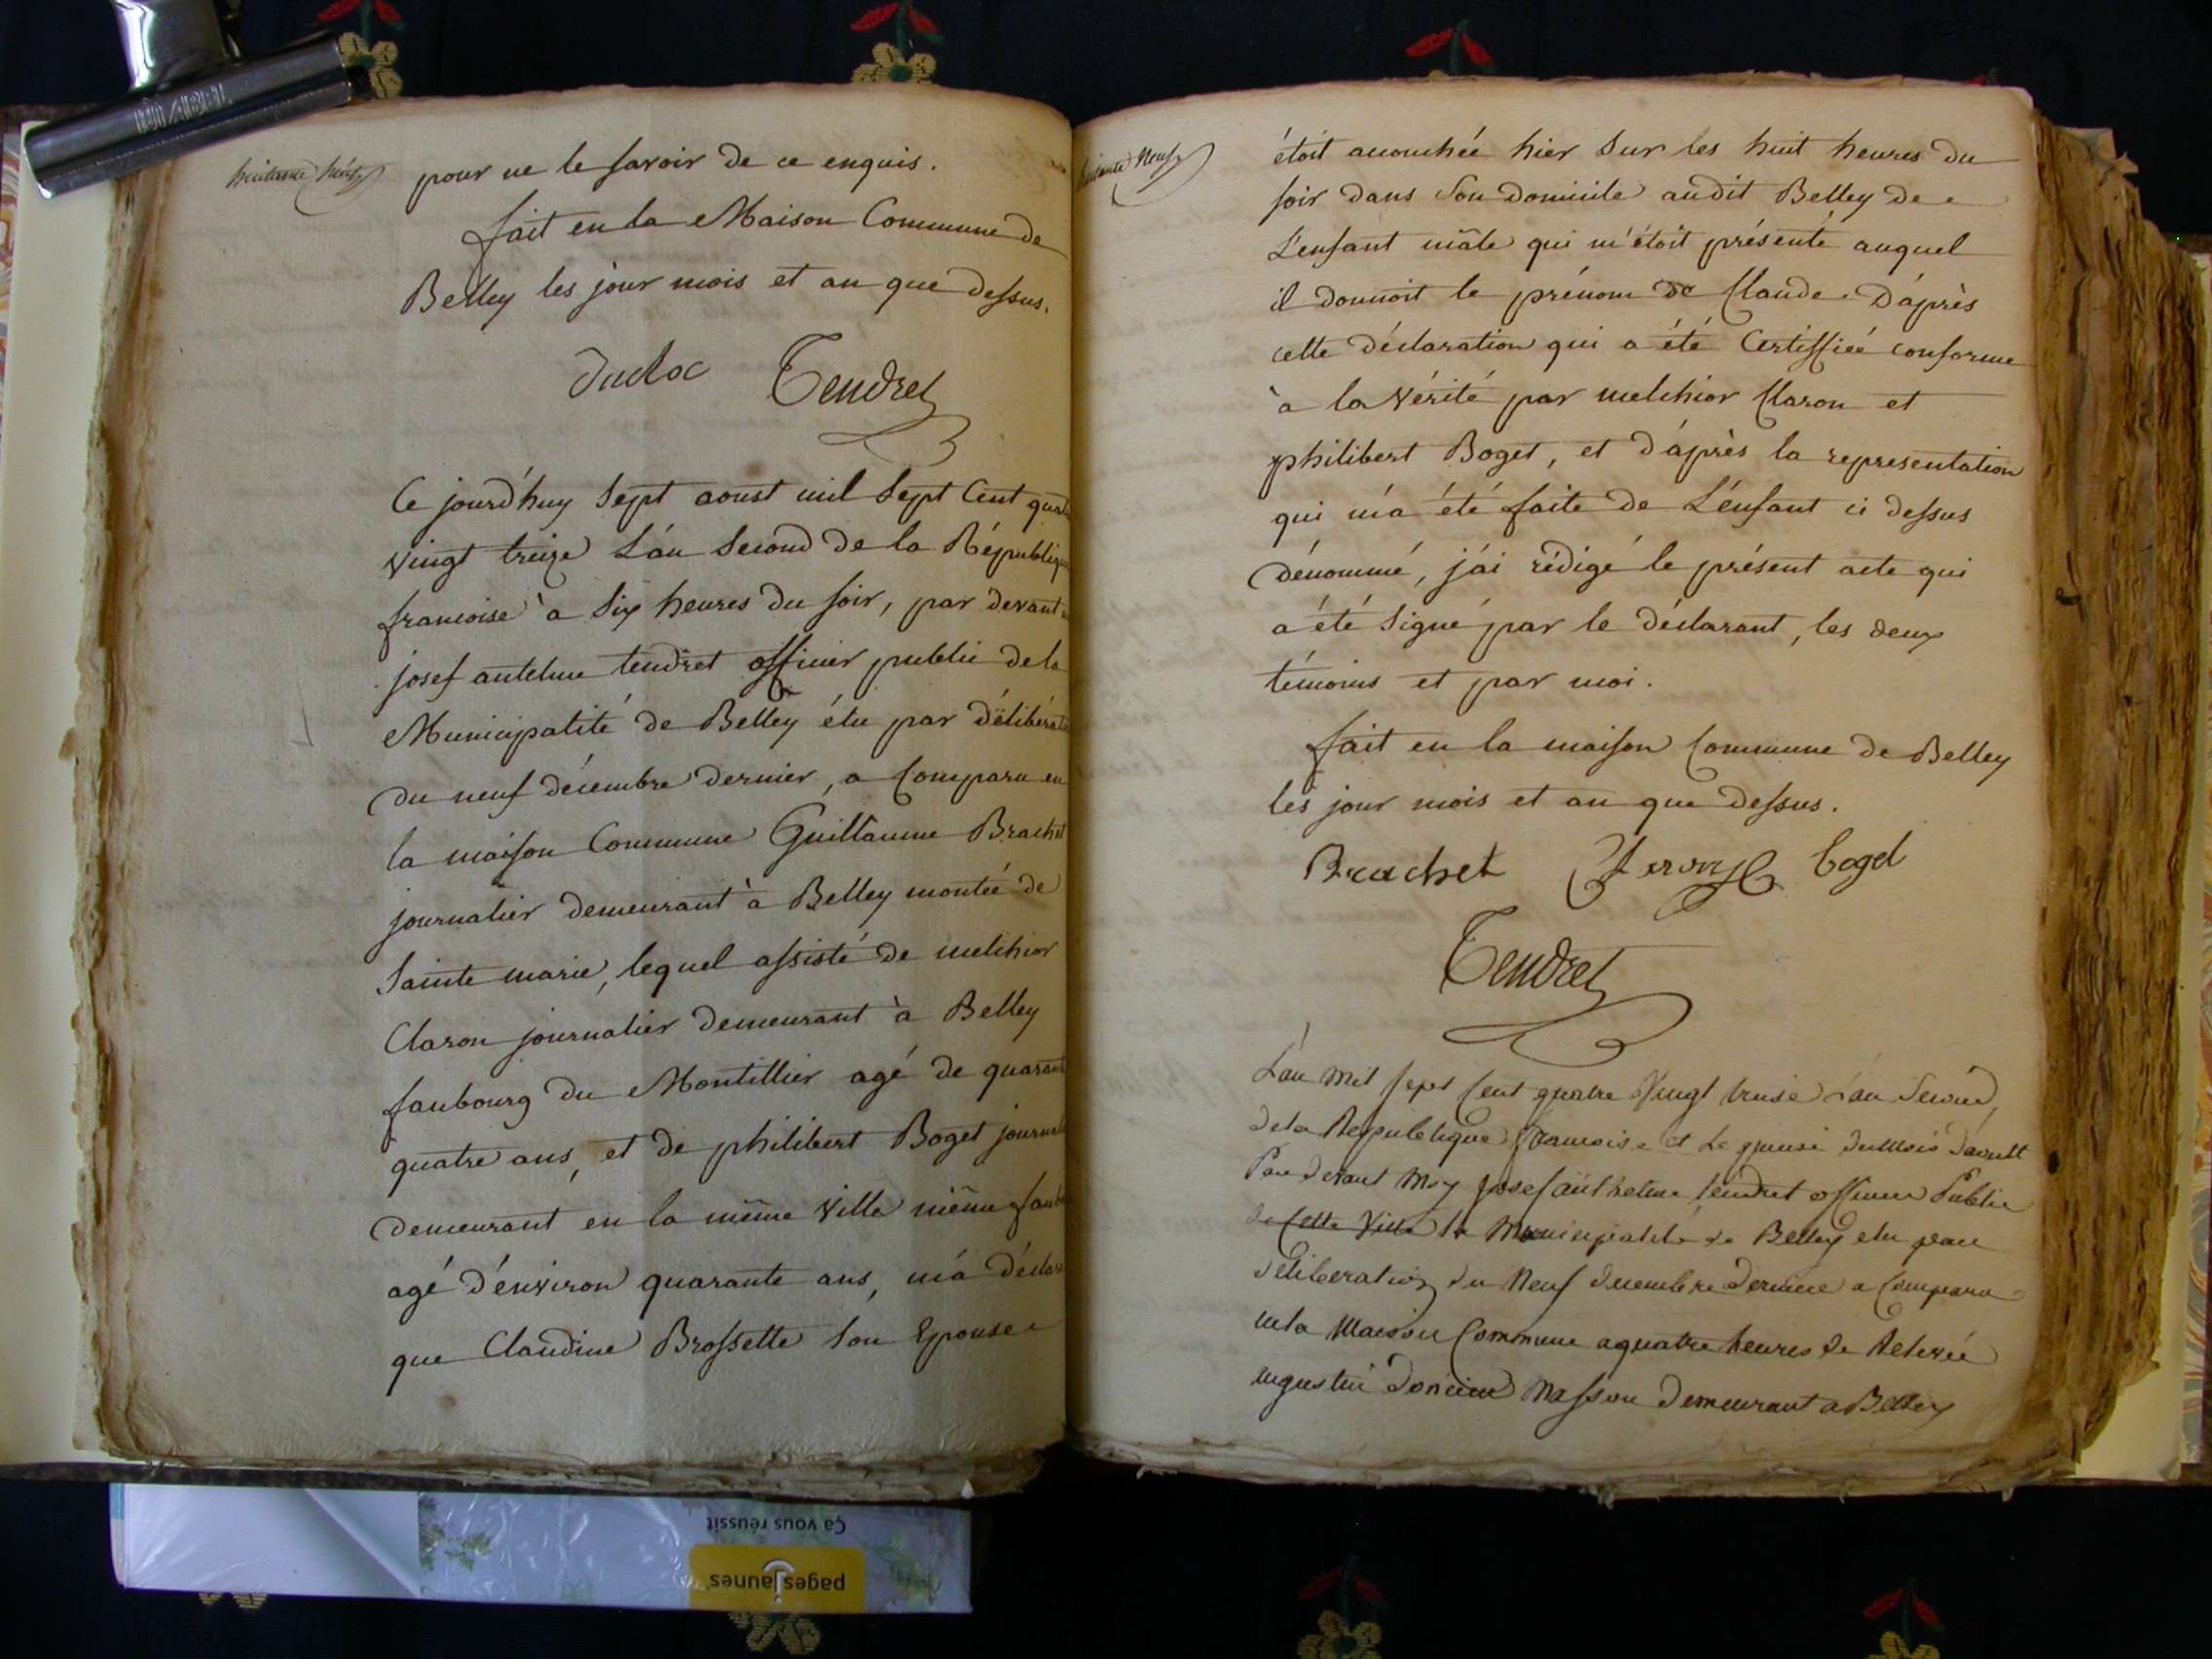 huitante huit
pour ne le savoir de ce enquis.
fait en la Maison Commune de
Belley les jour mois et an que dessus.
Ducloc Tendret
Ce jourd'huy Sept aoust mil Sept Cent quat
vingt treize L'an Second de la Républiqu
francoise à Six heures du soir, par devant
josef antelme tendret officier public de la
Municipalité de Belley élu par Délibérat
du neuf décembre dernier, a Comparu en
la maison Commune Guillaume Brachet
journalier demeurant à Belley montée de
Sainte marie, lequel assisté de melchior
Claron journalier demeurant à Belley
faubourg du Montillier agé de quarant
quatre ans, et de philibert Boget journal
demeurant en la même Ville même faub
agé d'environ quarante ans, m'a déclar
que Claudine Brossette Son Epouse
huitante Neuf
étoit accouchée hier Sur les huit heures du
soir dans Son domicile audit Belley de
L'enfant mâle qui m'étoit présenté auquel
il donnoit le prénom de Claude. D'après
cette déclaration qui a été Certiffiée conforme
à la Vérité par melchior Claron et
philibert Boget, et d'après la representation
qui m'a été faite de L'enfant ci dessus
dénommé, j'ai rédigé le présent acte qui
a été Signé par le déclarant, les deux
témoins et par moi.
fait en la maison Commune de Belley
les jour mois et an que dessus.
Brachet Boget
Tendret
L'an Mil sept Cent quatre Vingt treise L'an Second
de la Republique francoise et Le quinse du Mois d'aoult
Par devant Moy josef anthelme tendret officier Public
de Cette Ville la Municipalité de Belley elu par
déliberation du Neuf decembre dernier a Comparu
en la Maison Commune a quatre heures de Relevée
augustin Masson demeurant a Belley
Ça vous réussit
pagesjaunes